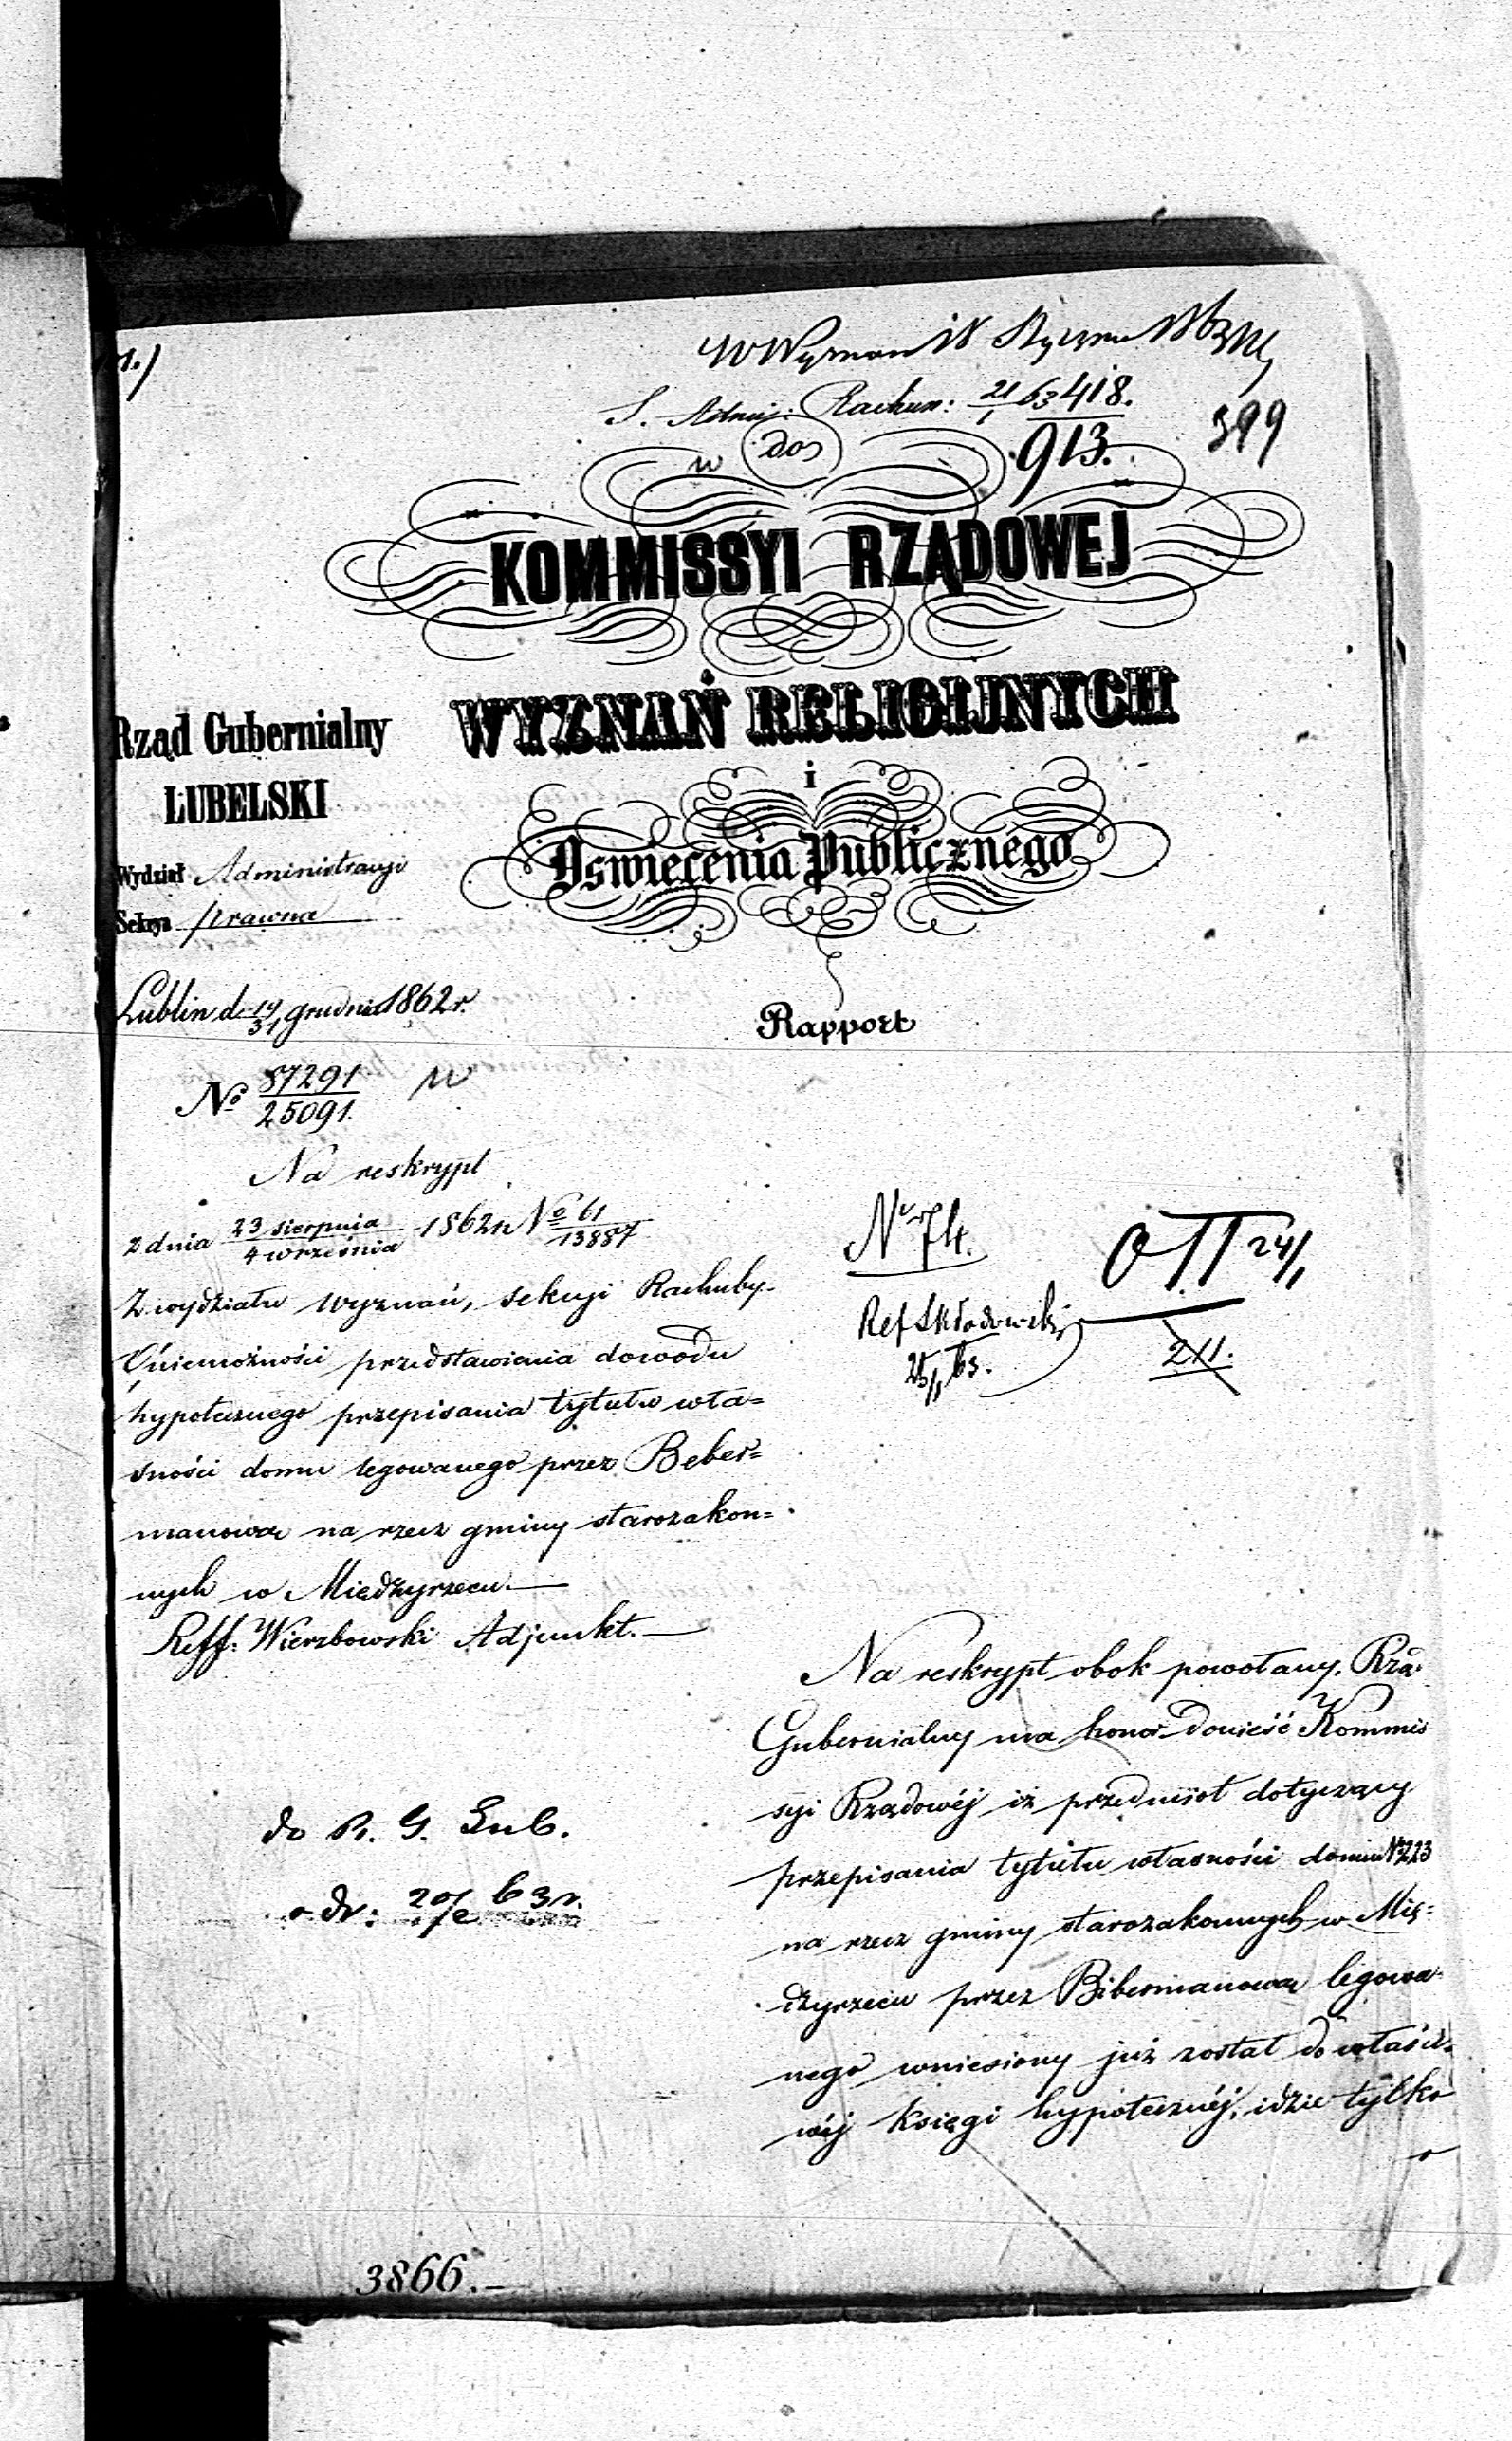 1.)
W Wyznań 18 Stycznia 1863
S. Admi: Rachun: 21/1 63 418.
913.
399
w
do
KOMMISSYI RZĄDOWEJ
WYZNAŃ RELIGIJNYCH
i
Oświecenia Publicznego
Rząd Gubernialny
LUBELSKI
Wydział Administracyi
Sekcya prawna
Lublin d. 19/31 grudnia 1862 r.
Rapport
No 87291/25091.
Na reskrypt
z dnia 23 sierpnia/4 września 1862 r No 61/13887
Z wydziału Wyznań, sekcyi Rachuby.
O niemożności przedstawienia dowodu
hypotecznego przepisania tytułu wła=
sności domu legowanego przez Beber=
manową na rzecz gminy starozakon=
nych w Międzyrzecu.
Reff: Wierzbowski Adjunkt.
Nr 74.
Ref Skłodowski
63.
24/1
2XI.
Na reskrypt obok powołany, Rzą
Gubernialny ma honor donieść Kommis
syi Rządowéj iż przedmiot dotyczący
przepisania tytułu własności domu No 223
na rzecz gminy starozakonnych w Mię=
dzyrzecu przez Bibermanową legowa
nego wniesiony już został do właści=
wéj księgi hypotecznéj, idzie tylko
o
do R. G. Lub.
odr: 20/2 63 r.
3866.